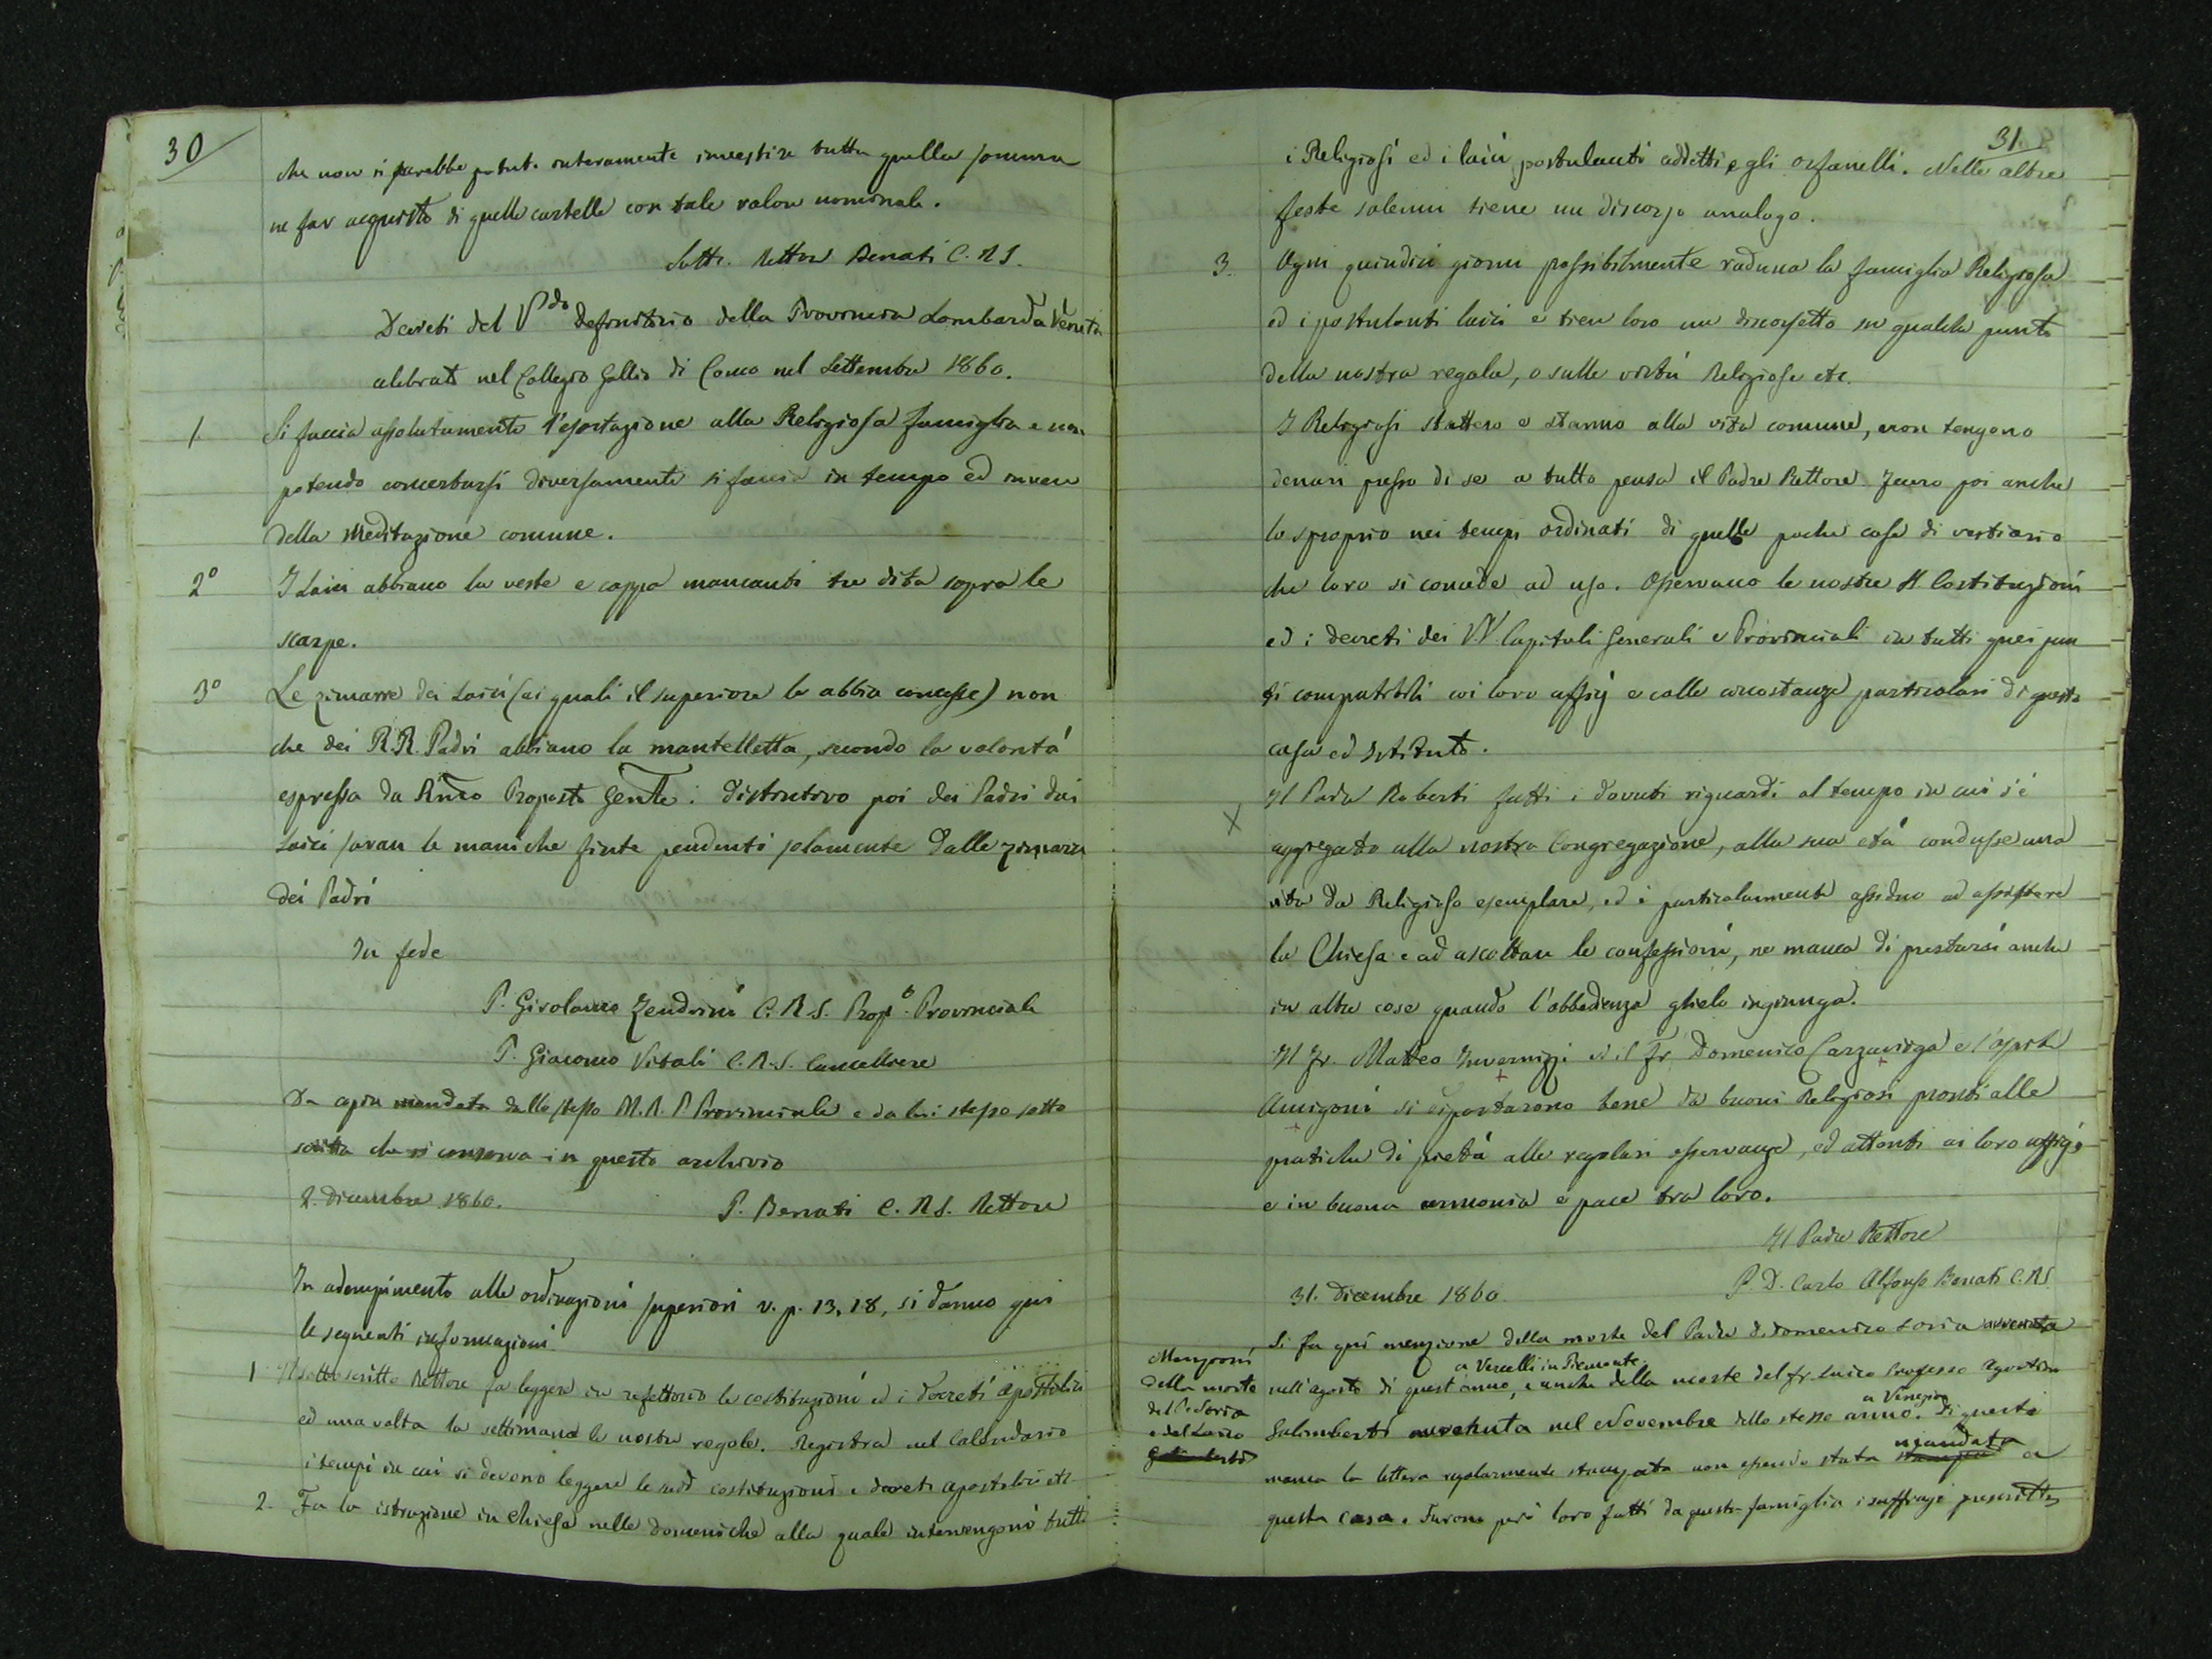 30
che non si sarebbe potuto interamente investire tutta quella somma
ne far acquisto di quelle cartelle con tale valore nominale.
Sott. Rettore Benati C.R.S.
Decreti del Vdo Definitorio della Provincia Lombarda Veneta
celebrato nel Collegio Gallio di Como nel Settembre 1860.
1. Si faccia assolutamente l'esortazione alla Religiosa famiglia e non
potendo concertarsi diversamente si faccia in tempo ed invece
della meditazione comune.
2° I Laici abbiano la veste e cappa mancanti tre dita sopra le
scarpe.
3° Le zimarre dei Laici (ai quali il superiore le abbia concesse) non
che dei R.R. Padri abbiano la mantelletta, secondo la volontá
espressa da Rmo Preposto Genle. Distintivo poi dei Padri dai
Laici saran le maniche finte pendenti solamente dalle zimarre
dei Padri
In fede
P. Girolamo Zendrini C.R.S. Propo. Provinciale
P. Giacomo Vitali C.R.S. Cancelliere
Da copia mandata dallo stesso M.R.P. Provinciale e da lui stesso sotto
scritta che si conserva in questo archivio
2. Dicembre 1860. P. Benati C.R.S. Rettore
In adempimento alle ordinazioni superiori v. p. 13, 18, si danno qui
le seguenti informazioni
1 Il sottoscritto Rettore fa leggere in refettorio le costituzioni ed i decreti apostolici
ed una volta la settimana le nostre regole. Registra nel Calendario
i tempi in cui si devono leggere le sudd costituzioni e decreti apostolici etc
2. Fa la istruzione in Chiesa nelle domeniche alla quale intervengono tutti
31.
i Religiosi ed i laici postulanti addetti e gli orfanelli. Nelle altre
feste solenni tiene un discorso analogo.
3. Ogni quindici giorni possibilmente raduna la famiglia Religiosa
ed i postulanti laici e tien loro un discorsetto su qualche punto
della nostra regola, o sulle virtú Religiose etc.
I Religiosi stettero e stanno alla vita comune, non tengono
denari presso di se a tutto pensa il Padre Rettore. Fecero poi anche
lo sproprio nei tempi ordinati di quelle poche cose di vestiario
che loro si concede ad uso. Osservano le nostre SS. Costituzioni
ed i decreti dei VV. Capitoli Generali e Provinciali in tutti quei pun
ti compatibili coi loro uffizj e colle circostanze particolari di questa
casa ed Istituto.
X Il Padre Roberti fatti i dovuti riguardi al tempo in cui s'é
aggregato alla nostra Congregazione, alla sua etá condusse una
vita da Religioso esemplare, ed é particolarmente assiduo ad assistere
la Chiesa e ad ascoltare le confessioni, ne manca di prestarsi anche
in altre cose quando l'obbedienza glielo ingiunga.
Il Fr. Matteo Invernizzi ed il Fr. Domenico Carzaniga e l'ospite
Amigoni si diportarono bene da buoni Religiosi pronti alle
pratiche di pietá alle regolari osservanze, ed attenti ai loro uffizj
e in buona armonia e pace tra loro.
Il Padre Rettore
31. Dicembre 1860. P. D. Carlo Alfonso Benati C.R.S.
Menzioni
della morte
del P. Soria
e del Laico
Galimberti
Si fa qui menzione della morte del Padre D. Domenico Soria avvenuta
a Vercelli in Piemonte
nell'agosto di quest'anno, e anche della morte del fr. laico Professo Agostino
a Venezia
Galimberti avvenuta nel Novembre dello stesso anno. Di questi
mandata
manca la lettera regolarmente stampata non essendo stata stampa a
questa casa. Furono peró loro fatti da questa famiglia i suffragi prescritti